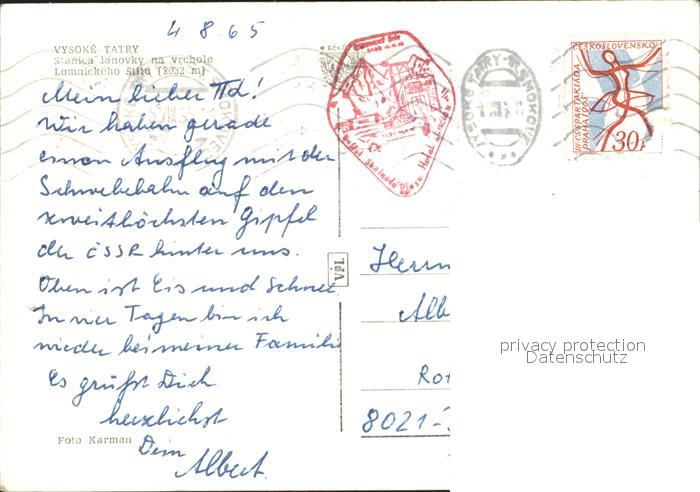 4.8.65
VYSOKÉ TATRY
Stanica lanovky na vrchole
Lomnického štítu [2632 m]
Mein lieber
Wir haben gerade
einen Ausflug mit der
Schwebebahn auf den
zweithöchsten Gipfel
der ČSSR hinter uns.
Oben ist Eis und Schnee
In vier Tagen bin ich
wieder bei meiner Familie
Es grüßt Dich
herzlichst
Dein
Albert
Foto Karman
Kčs
VYSOKÉ TATRY-SLOVAKOTU
ČESKOSLOVENSKO
III. CELOST. SPARTAKIÁDA
PRAHA 1965
30h
VPL
Herrn
Alb
Rot
8021-
privacy protection
Datenschutz